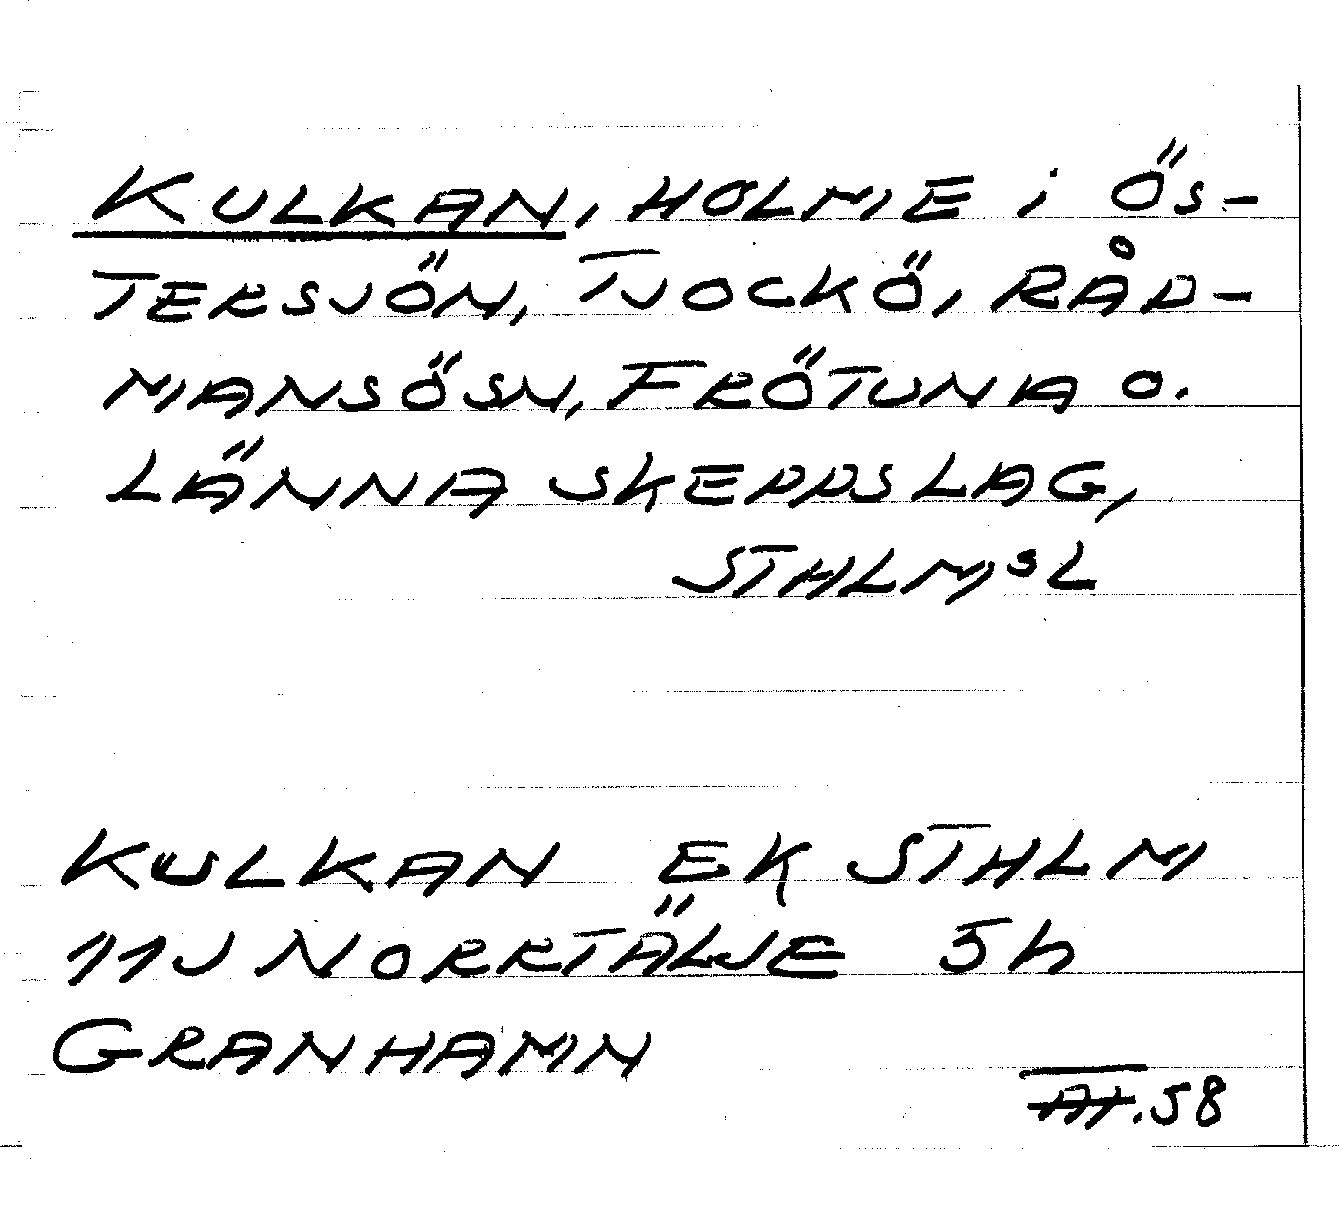 KULKAN, HOLME i ÖS-
TERSJÖN, TJOCKÖ, RÅD-
MANSÖSN, FRÖTUNA O.
LÄNNA SKEPPSLAG,
STHLMSL
KULKAN EK STHLM
11J NORRTÄLJE 5h
GRANHAMN
.58